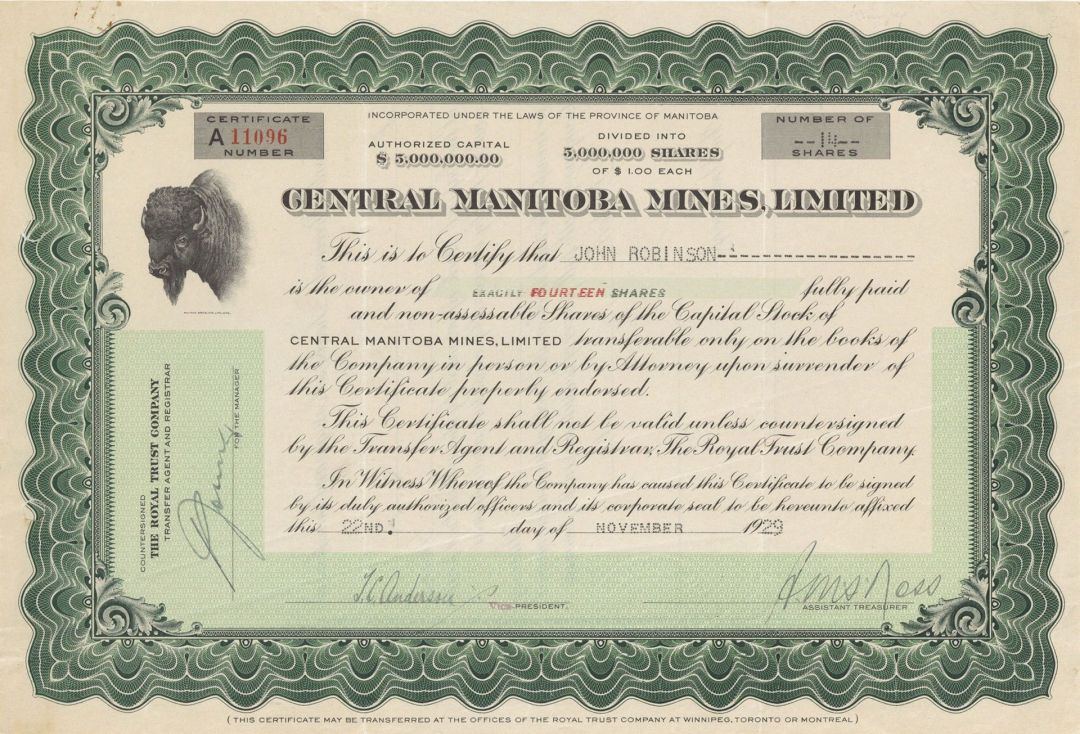 CERTIFICATE
A 11096
NUMBER
INCORPORATED UNDER THE LAWS OF THE PROVINCE OF MANITOBA
AUTHORIZED CAPITAL
$ 5,000,000.00
DIVIDED INTO
5,000,000 SHARES
OF $ 1.00 EACH
NUMBER OF
--14--
SHARES
CENTRAL MANITOBA MINES, LIMITED
This is to Certify that JOHN ROBINSON
is the owner of EXACTLY FOURTEEN SHARES fully paid
and non-assessable Shares of the Capital Stock of
CENTRAL MANITOBA MINES, LIMITED transferable only on the books of
the Company in person or by Attorney upon surrender of
this Certificate properly endorsed.
This Certificate shall not be valid unless countersigned
by the Transfer Agent and Registrar, The Royal Trust Company.
In Witness Whereof the Company has caused this Certificate to be signed
by its duly authorized officers and its corporate seal to be hereunto affixed
this 22ND. day of NOVEMBER 1929
COUNTERSIGNED
THE ROYAL TRUST COMPANY
TRANSFER AGENT AND REGISTRAR
FOR THE MANAGER
J.C. Anderson
VICE-PRESIDENT.
Ross
ASSISTANT TREASURER
(THIS CERTIFICATE MAY BE TRANSFERRED AT THE OFFICES OF THE ROYAL TRUST COMPANY AT WINNIPEG, TORONTO OR MONTREAL)